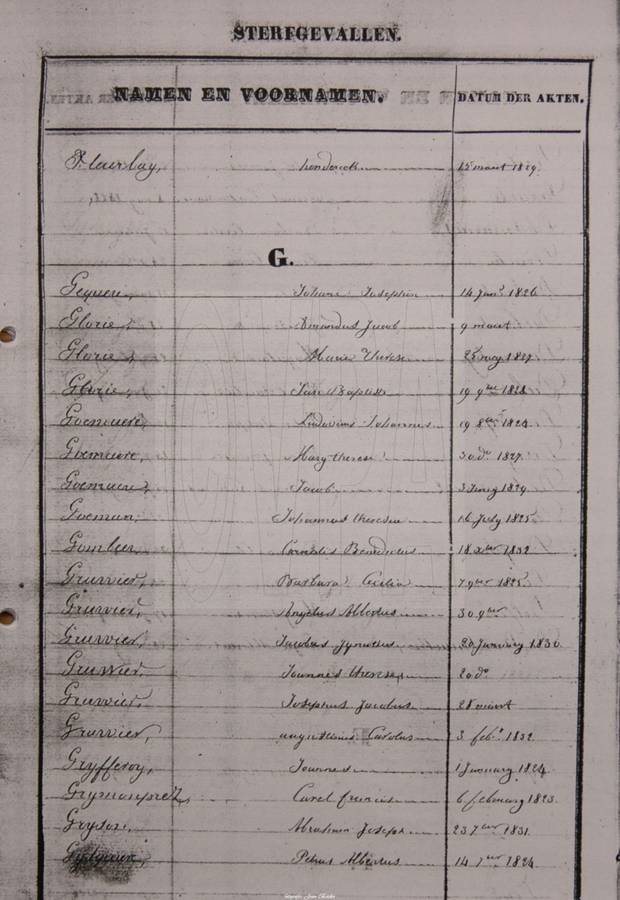 STERFGEVALLEN.
NAMEN EN VOORNAMEN. DATUM DER AKTEN.
Fleurbay, 15 maart 1829.
G.
Gequere, Johanna Josephin 14 janr 1826
Glorie, Amandus Jacob 9 maart
Glorie, Marie Therese 25 1827.
Glorie, Jan Baptiste 19 9bre 1828
Goemaere Ludovicus Johannes 19 1824
Goemaere, Mary therese 30 do 1827.
Goemaere, Jacob 3 Juny 1829
Goeman, Johannes theresia 16 July 1825
Gombeer, Cornelis Benedictus 18 xber 1832
Gruwier, Barbara Cecilia 7 9ber 1825.
Gruwier, Angelus Albertus 30 9ber
Gruwier, Jacobus 20 January 1830
Gruwier, Joannes 20 do
Gruwier, Josephus Jacobus 28 maart
Gruwier, augustinus Carolus 3 febr 1832.
Gryfferoy, Joannes 1 January 1824
Grymonprez, Carel francis 6 february 1823.
Gryson, Abraham Joseph 23 7ber 1831.
Petrus Albertus 14 1824